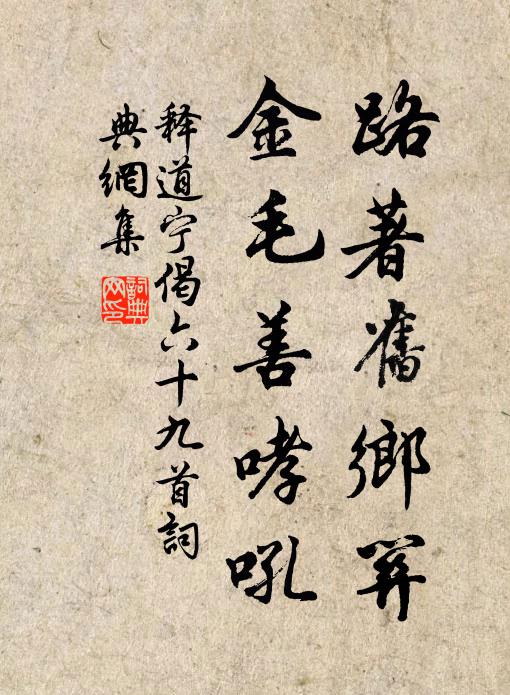 路著舊鄉關
金毛善哮吼
释道宁偈六十九首詞
典網集
詞典
网印